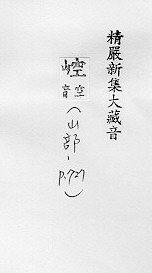 精嚴新集大藏音
崆
音空
(山部-p.727)